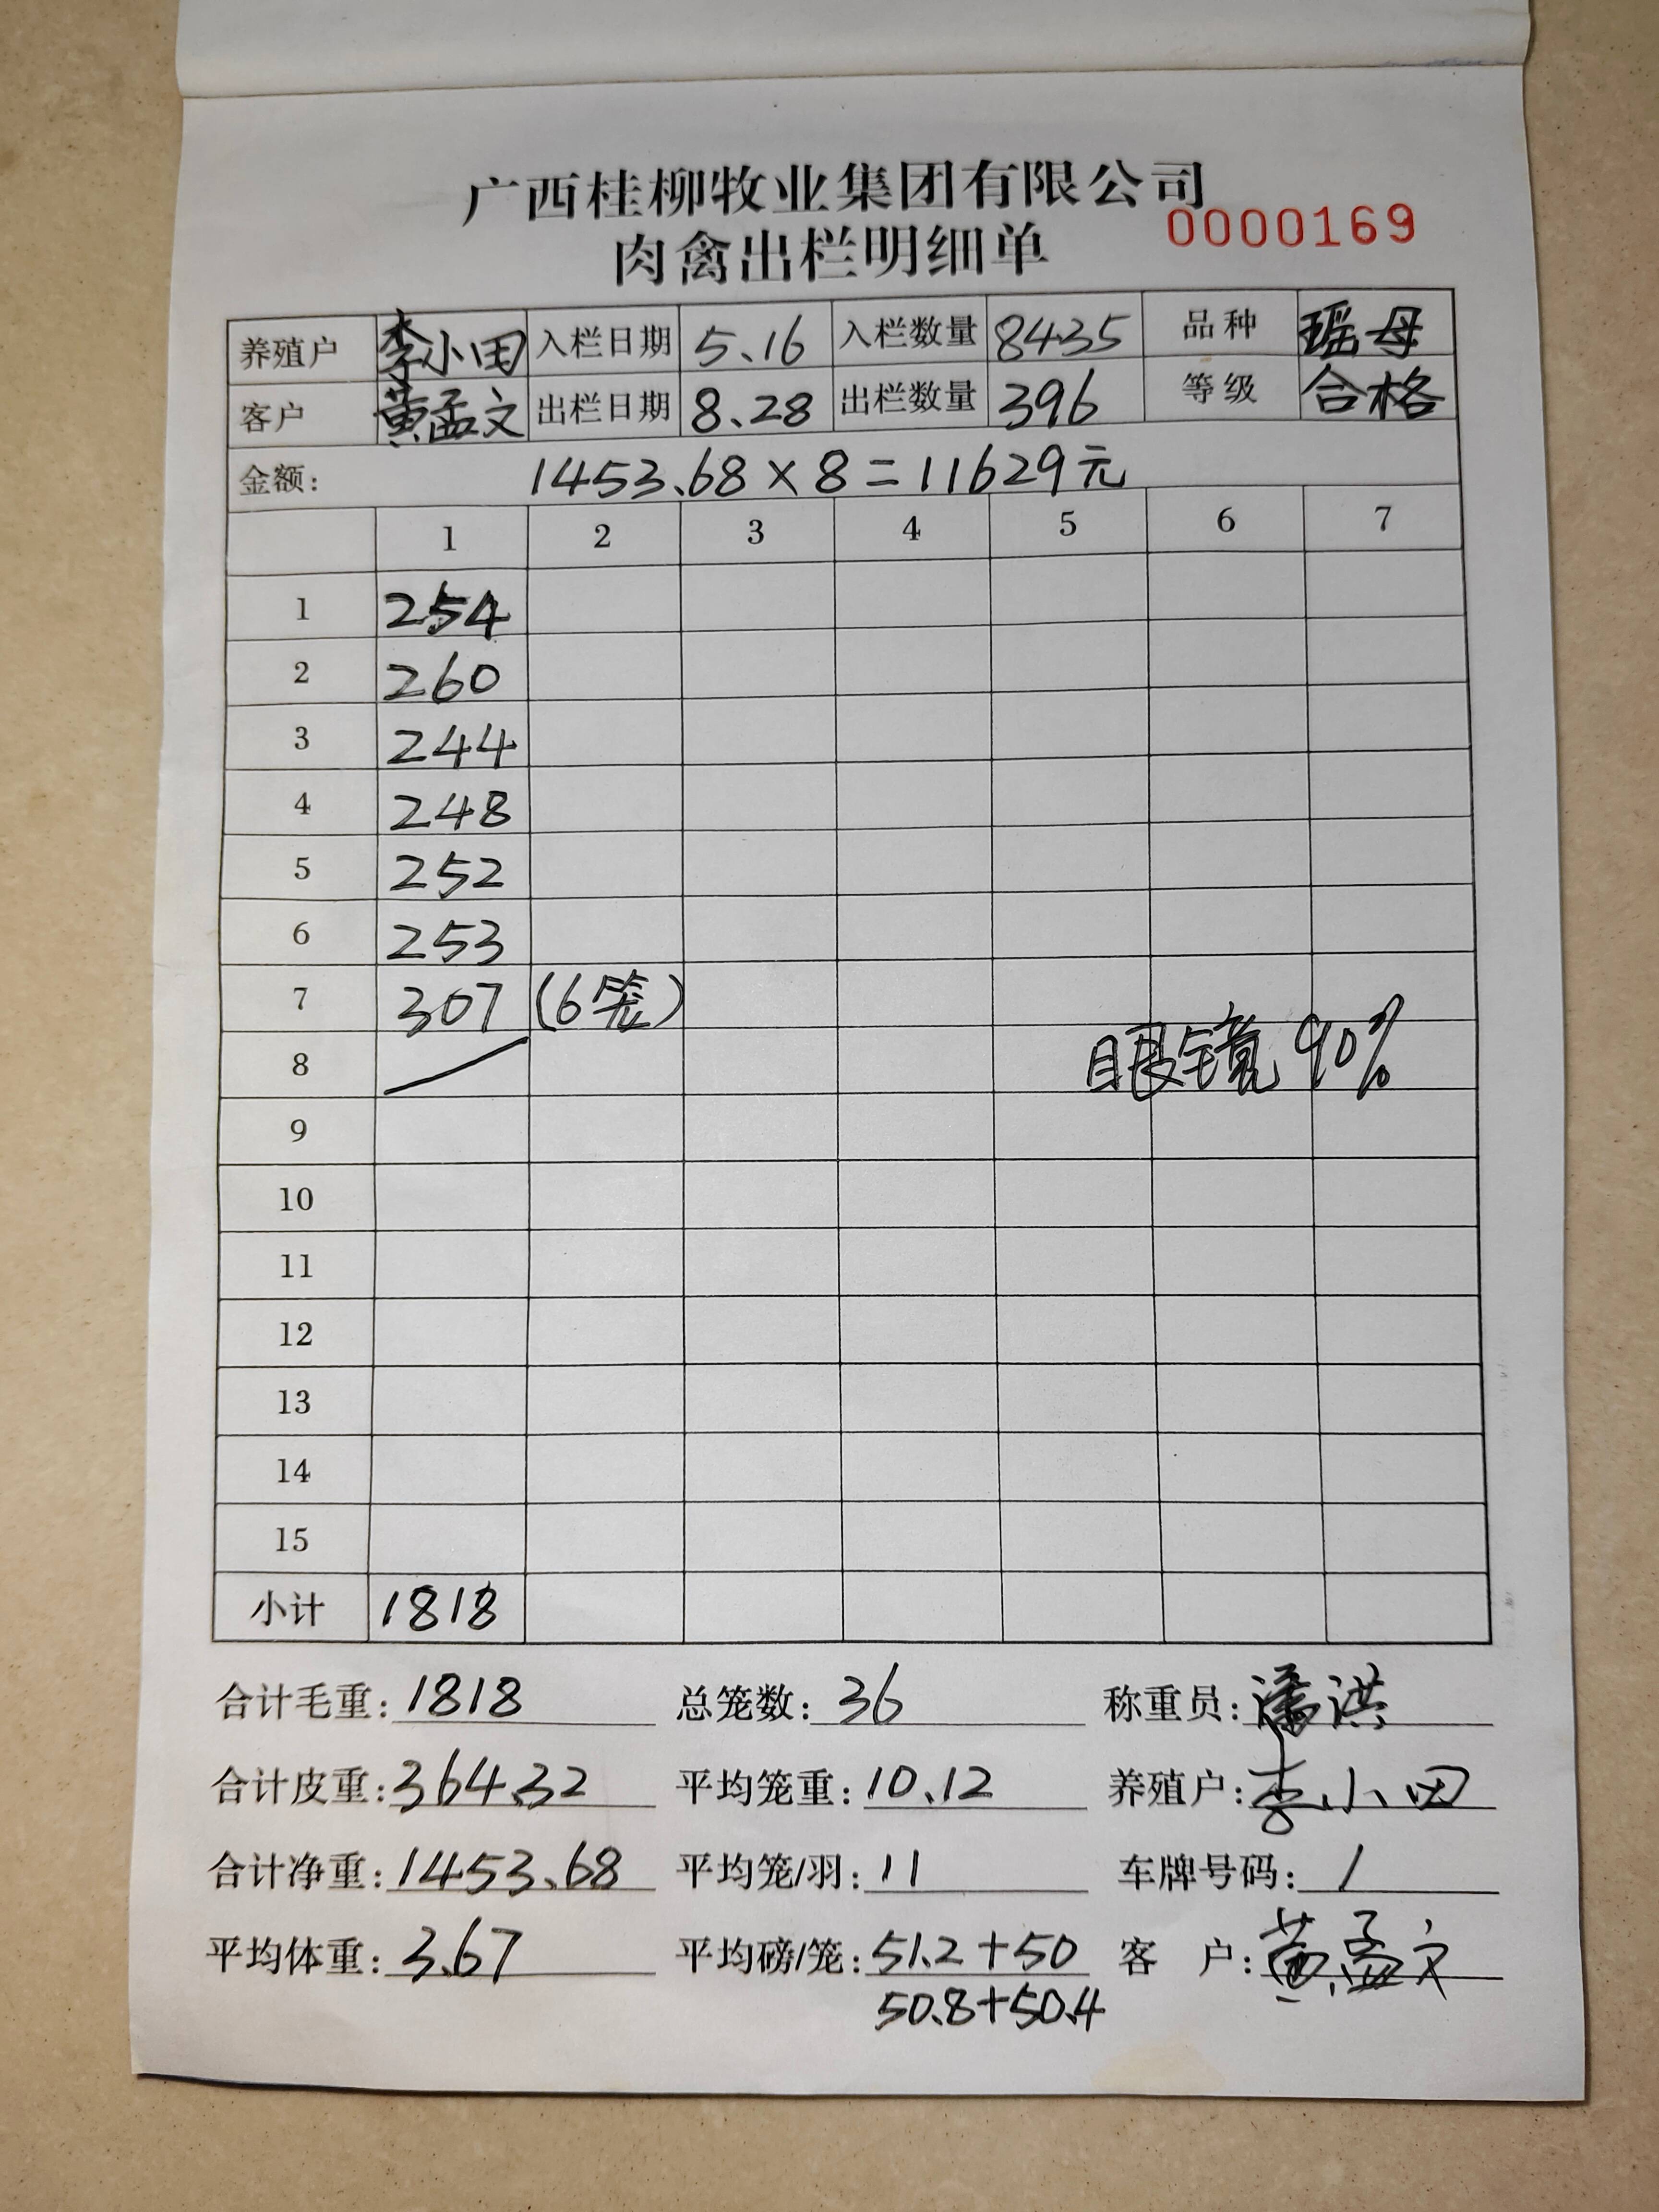 广西桂柳牧业集团有限公司
肉禽出栏明细单 0000169
养殖户 李小田 入栏日期 5.16 入栏数量 8435 品种 瑶母
客户 黄孟文 出栏日期 8.28 出栏数量 396 等级 合格
金额: 1453.68×8=11629元
1 2 3 4 5 6 7
1 254
2 260
3 244
4 248
5 252
6 253
7 307 (6笼)
8 眼镜90%
9
10
11
12
13
14
15
小计 1818
合计毛重: 1818 总笼数: 36 称重员: 潘洪
合计皮重: 364.32 平均笼重: 10.12 养殖户: 李小田
合计净重: 1453.68 平均笼/羽: 11 车牌号码: /
平均体重: 3.67 平均磅/笼: 51.2+50 客户: 黄孟文
50.8+50.4